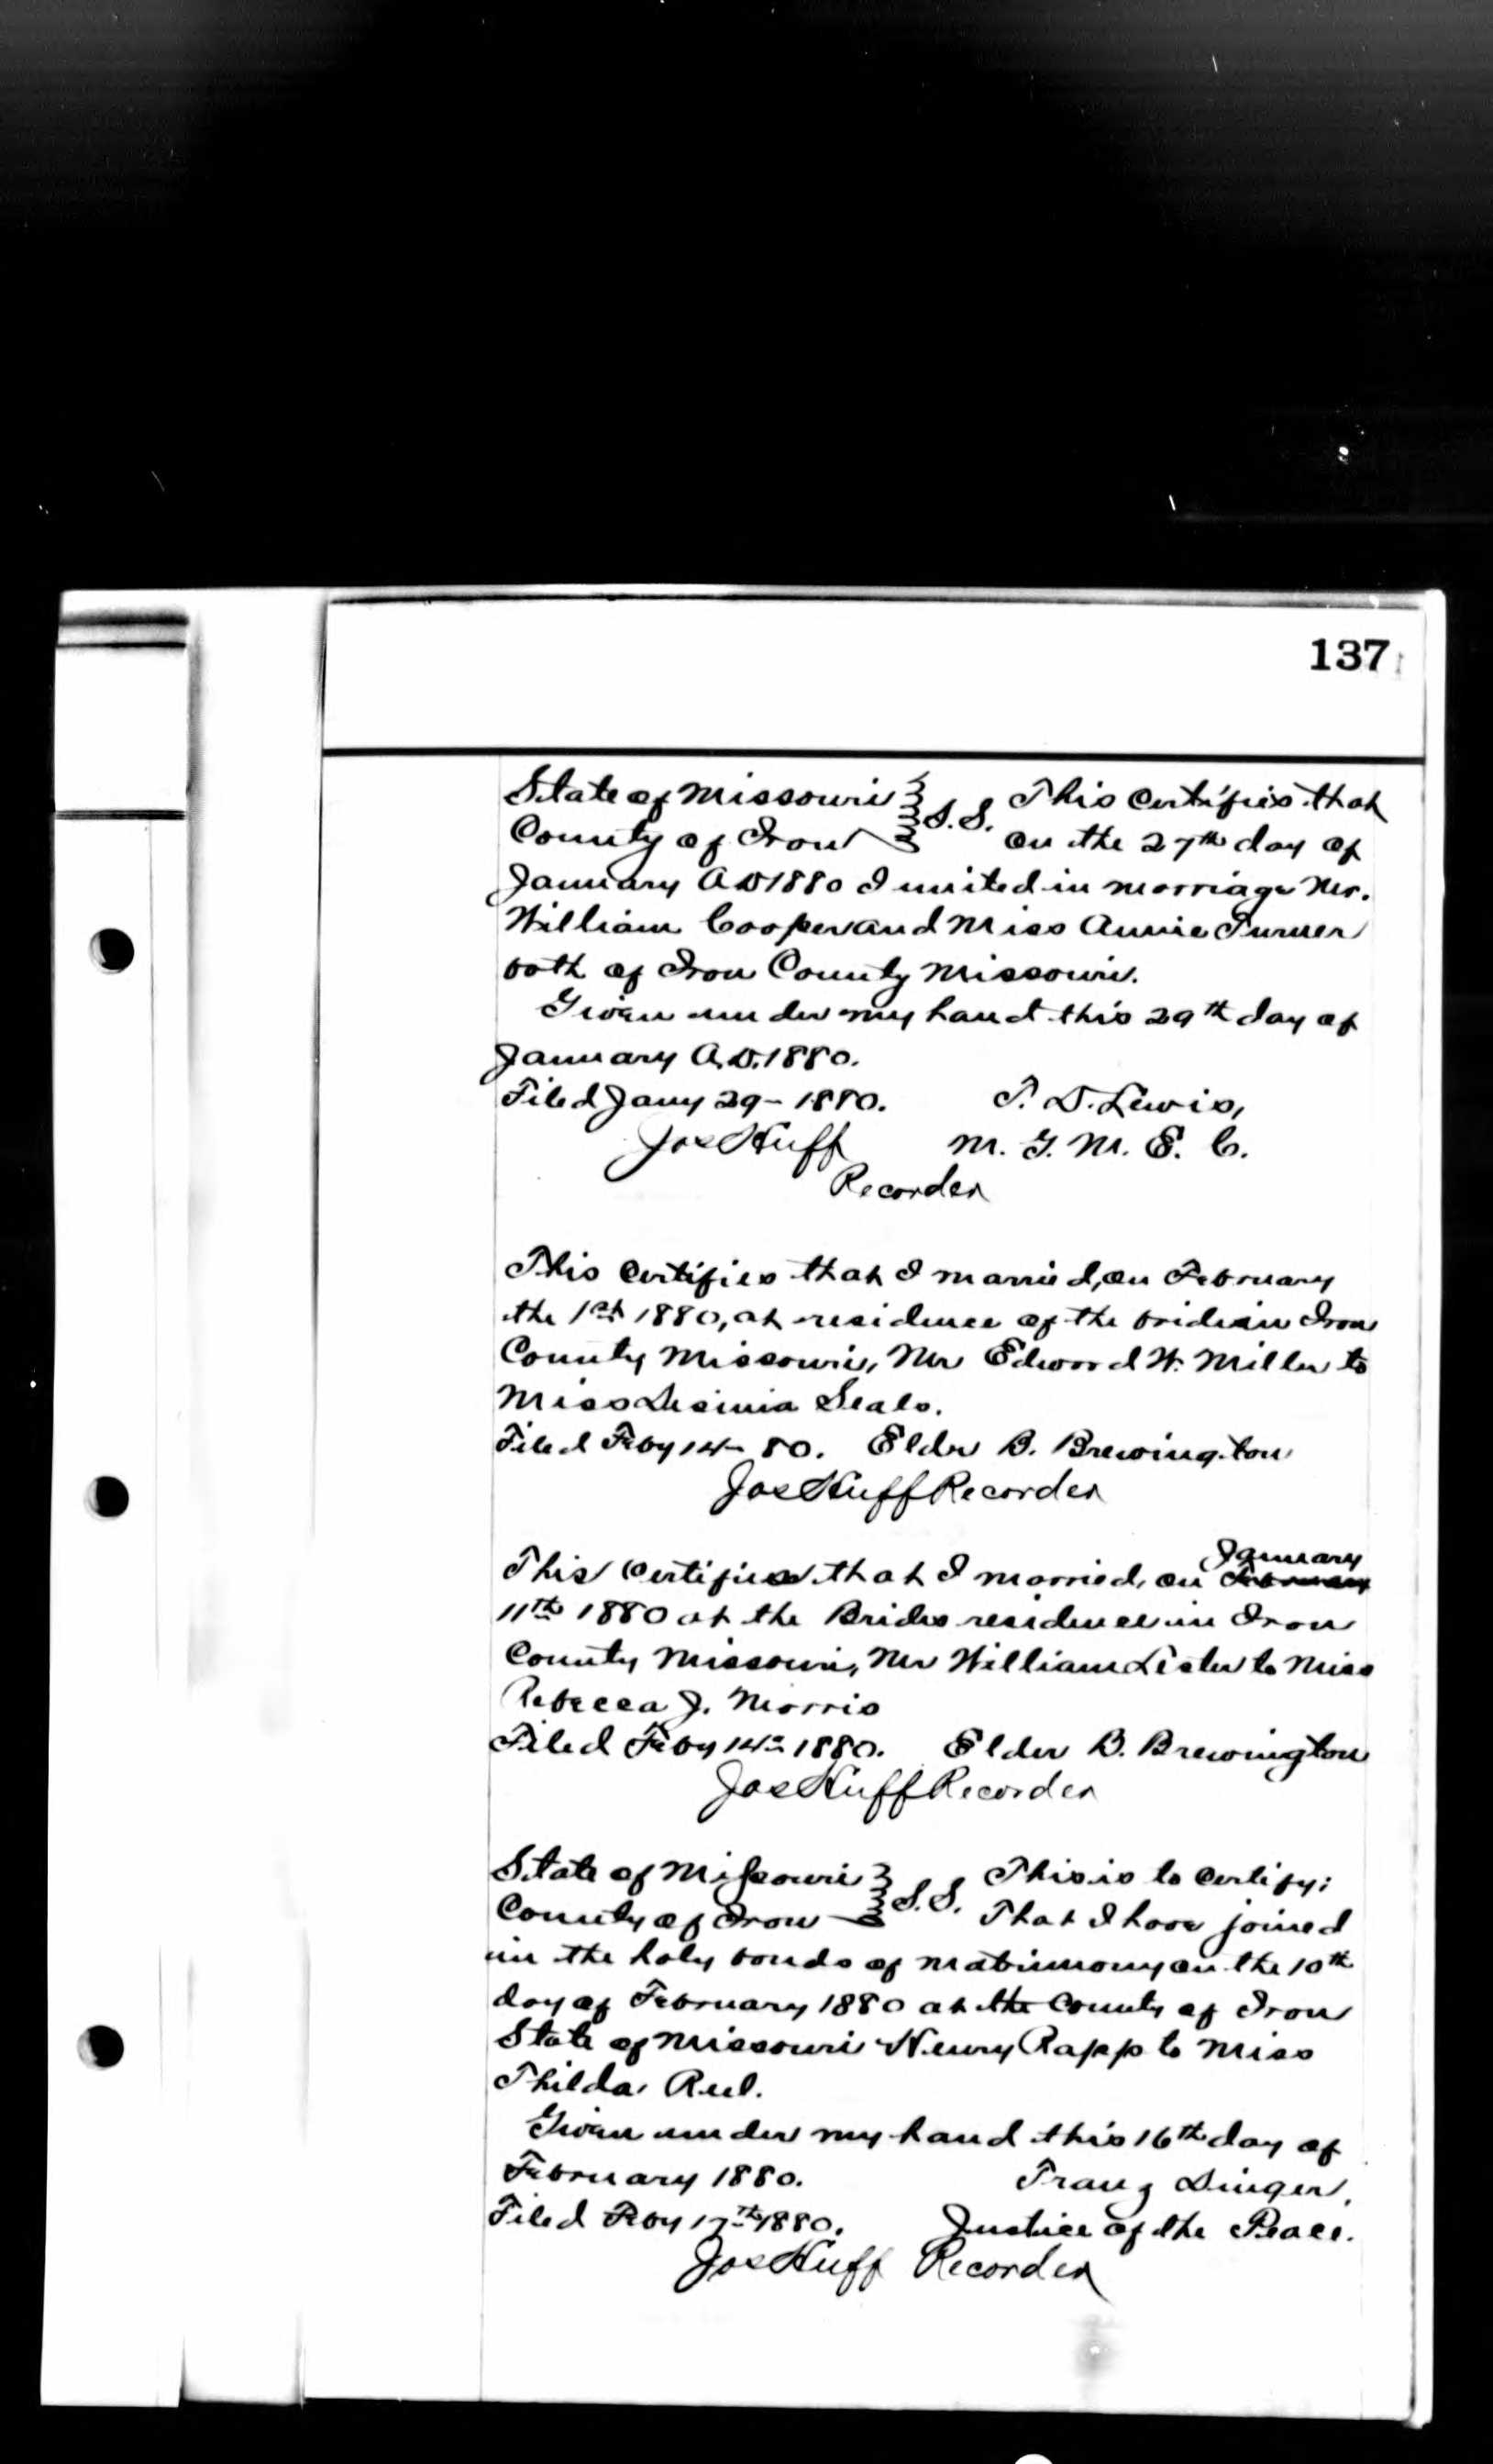 137
State of Missouri } S.S. This Certifies that
County of Iron } on the 27th day of
January A D 1880 I united in marriage Mr.
William Cooper and Miss Annie Turner
both of Iron County Missouri.
Given under my hand this 29th day of
January A.D. 1880.
Filed Jany 29- 1880. T. D. Lewis,
Jos Huff M. G. M. E. C.
Recorder
This Certifies that I married, on February
the 1st 1880, at residence of the bride in Iron
County Missouri, Mr Edward W. Miller to
Miss Seals.
Filed Feby 14- 80. Elder B. Brewington
Jos Huff Recorder
January
This Certifies that I married, on February
11th 1880 at the Brides residence in Iron
County Missouri, Mr William Lister to Miss
Rebecca J. Morris
Filed Feby 14th 1880. Elder B. Brewington
Jos Huff Recorder
State of Missouri } S.S. This is to Certify;
County of Iron } That I have joined
in the holy bonds of matrimony on the 10th
day of February 1880 at the County of Iron
State of Missouri Henry Rapp to Miss
Thilda
Given under my hand this 16th day of
February 1880. Franz Dinger,
Filed Feby 17th 1880. Justice of the Peace.
Jos Huff Recorder